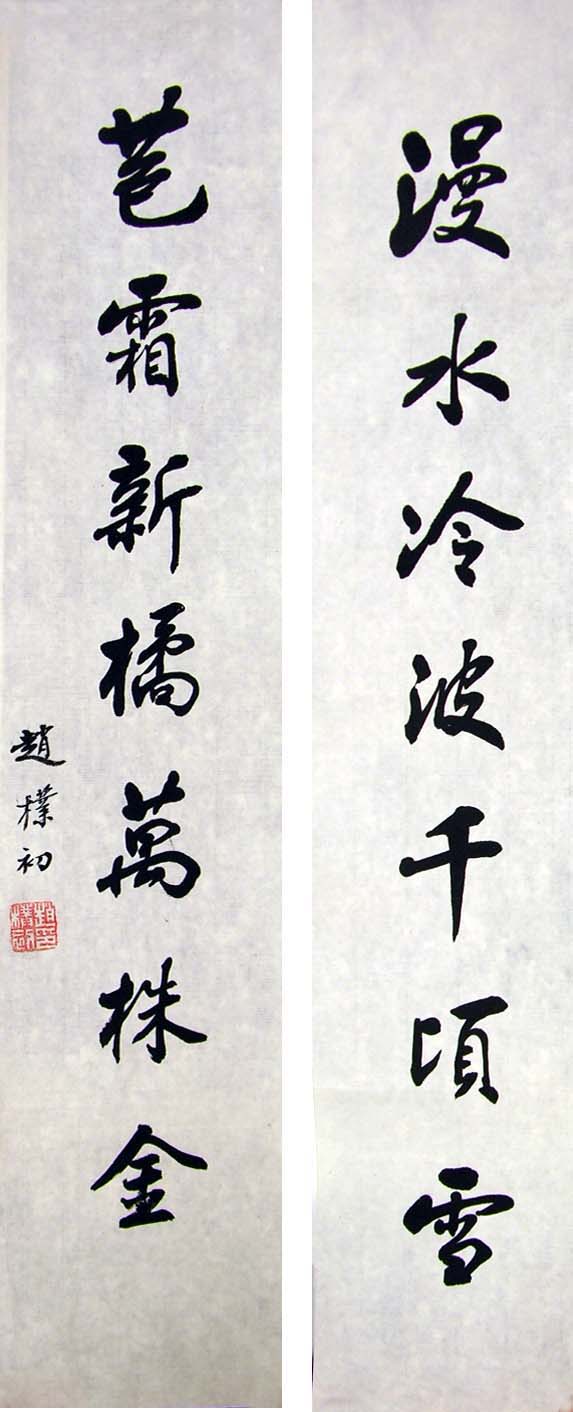 漫水冷波千頃雪
苞霜新橘萬株金
趙樸初
趙印樸初